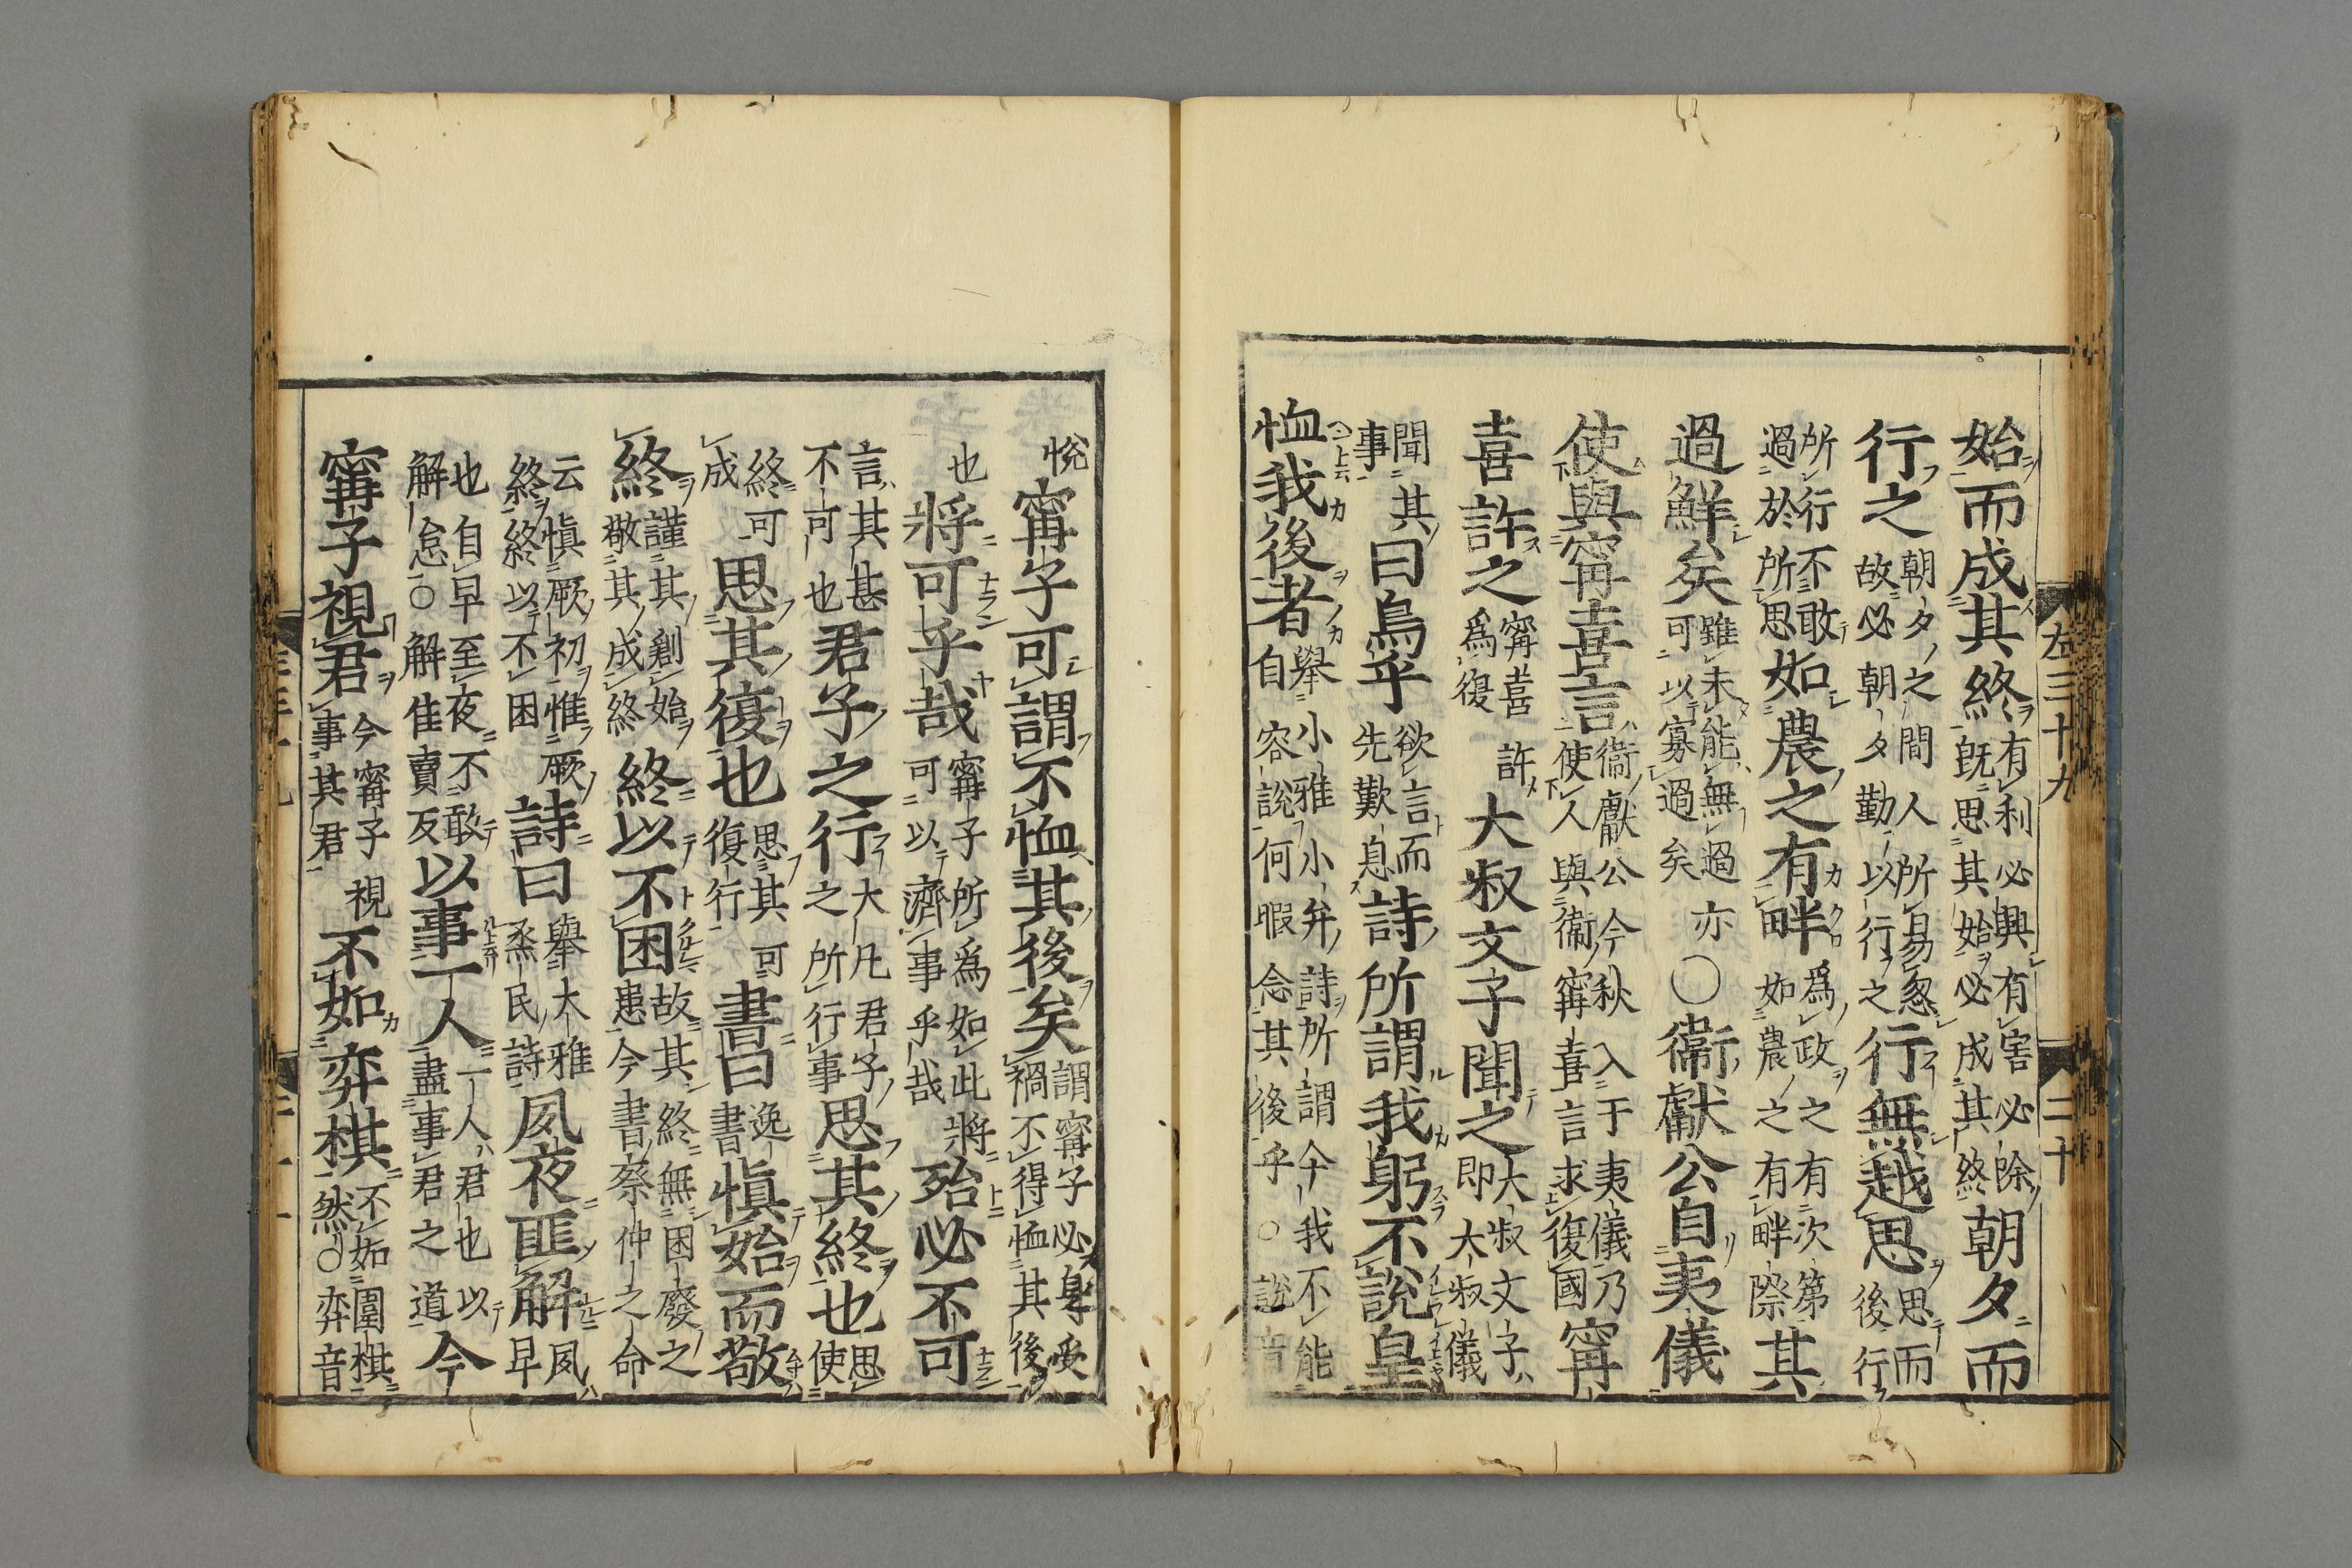 始而成其終有利必興有害必除既思其始必成其終朝夕而
行之朝夕之間人所易怱故必朝夕勤以行之行無越思思而後行
所行不敢過於所思如農之有畔爲政之有次第如農之有畔際其
過鮮矣雖未能無過亦可以寡過矣〇衞獻公自夷儀
使與甯喜言衞獻公今秋入于夷儀乃使人與衞甯喜言求復國甯
喜許之甯喜許爲復大叔文子聞之大叔文子即大叔儀
聞其事曰烏乎欲言而先歎息詩所謂我躬不說皇
恤我後者舉小雅小弁詩所謂今我不能自容說何暇念其後乎○說音
悅甯子可謂不恤其後矣謂甯子必身受禍不得恤其後
也將可乎哉甯子所爲如此將可以濟事乎哉殆必不可
言其甚不可也君子之行大凡君子之所行事思其終也思使
終可成思其復也思其可復行書曰逸書愼始而敬
終謹其創始敬其成終終以不困故其終無困廢之患今書蔡仲之命
云愼厥初惟厥終終以不困詩曰舉大雅烝民詩夙夜匪解夙早
也自早至夜不敢解怠○解佳賣反以事一人一人君也以盡事君之道今
甯子視君今甯子視事其君不如弈棋不如圍棋然○弈音
左三十九
二十